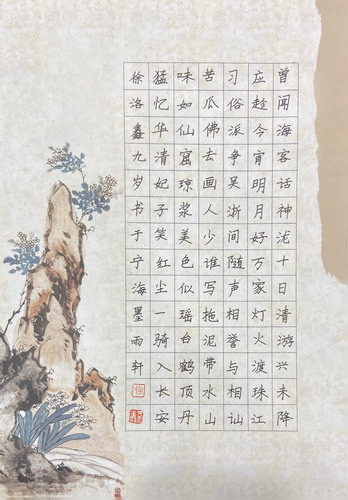 曾闻海客话神泷十日清游兴未降
应趁今宵明月好万家灯火渡珠江
习俗派争吴浙间随声相誉与相讪
苦瓜佛去画人少谁写拖泥带水山
味如仙窟琼浆美色似瑶白鹤顶丹
猛忆华清妃子笑红尘一骑入长安
徐洛鑫九岁书于宁海墨雨轩
徐